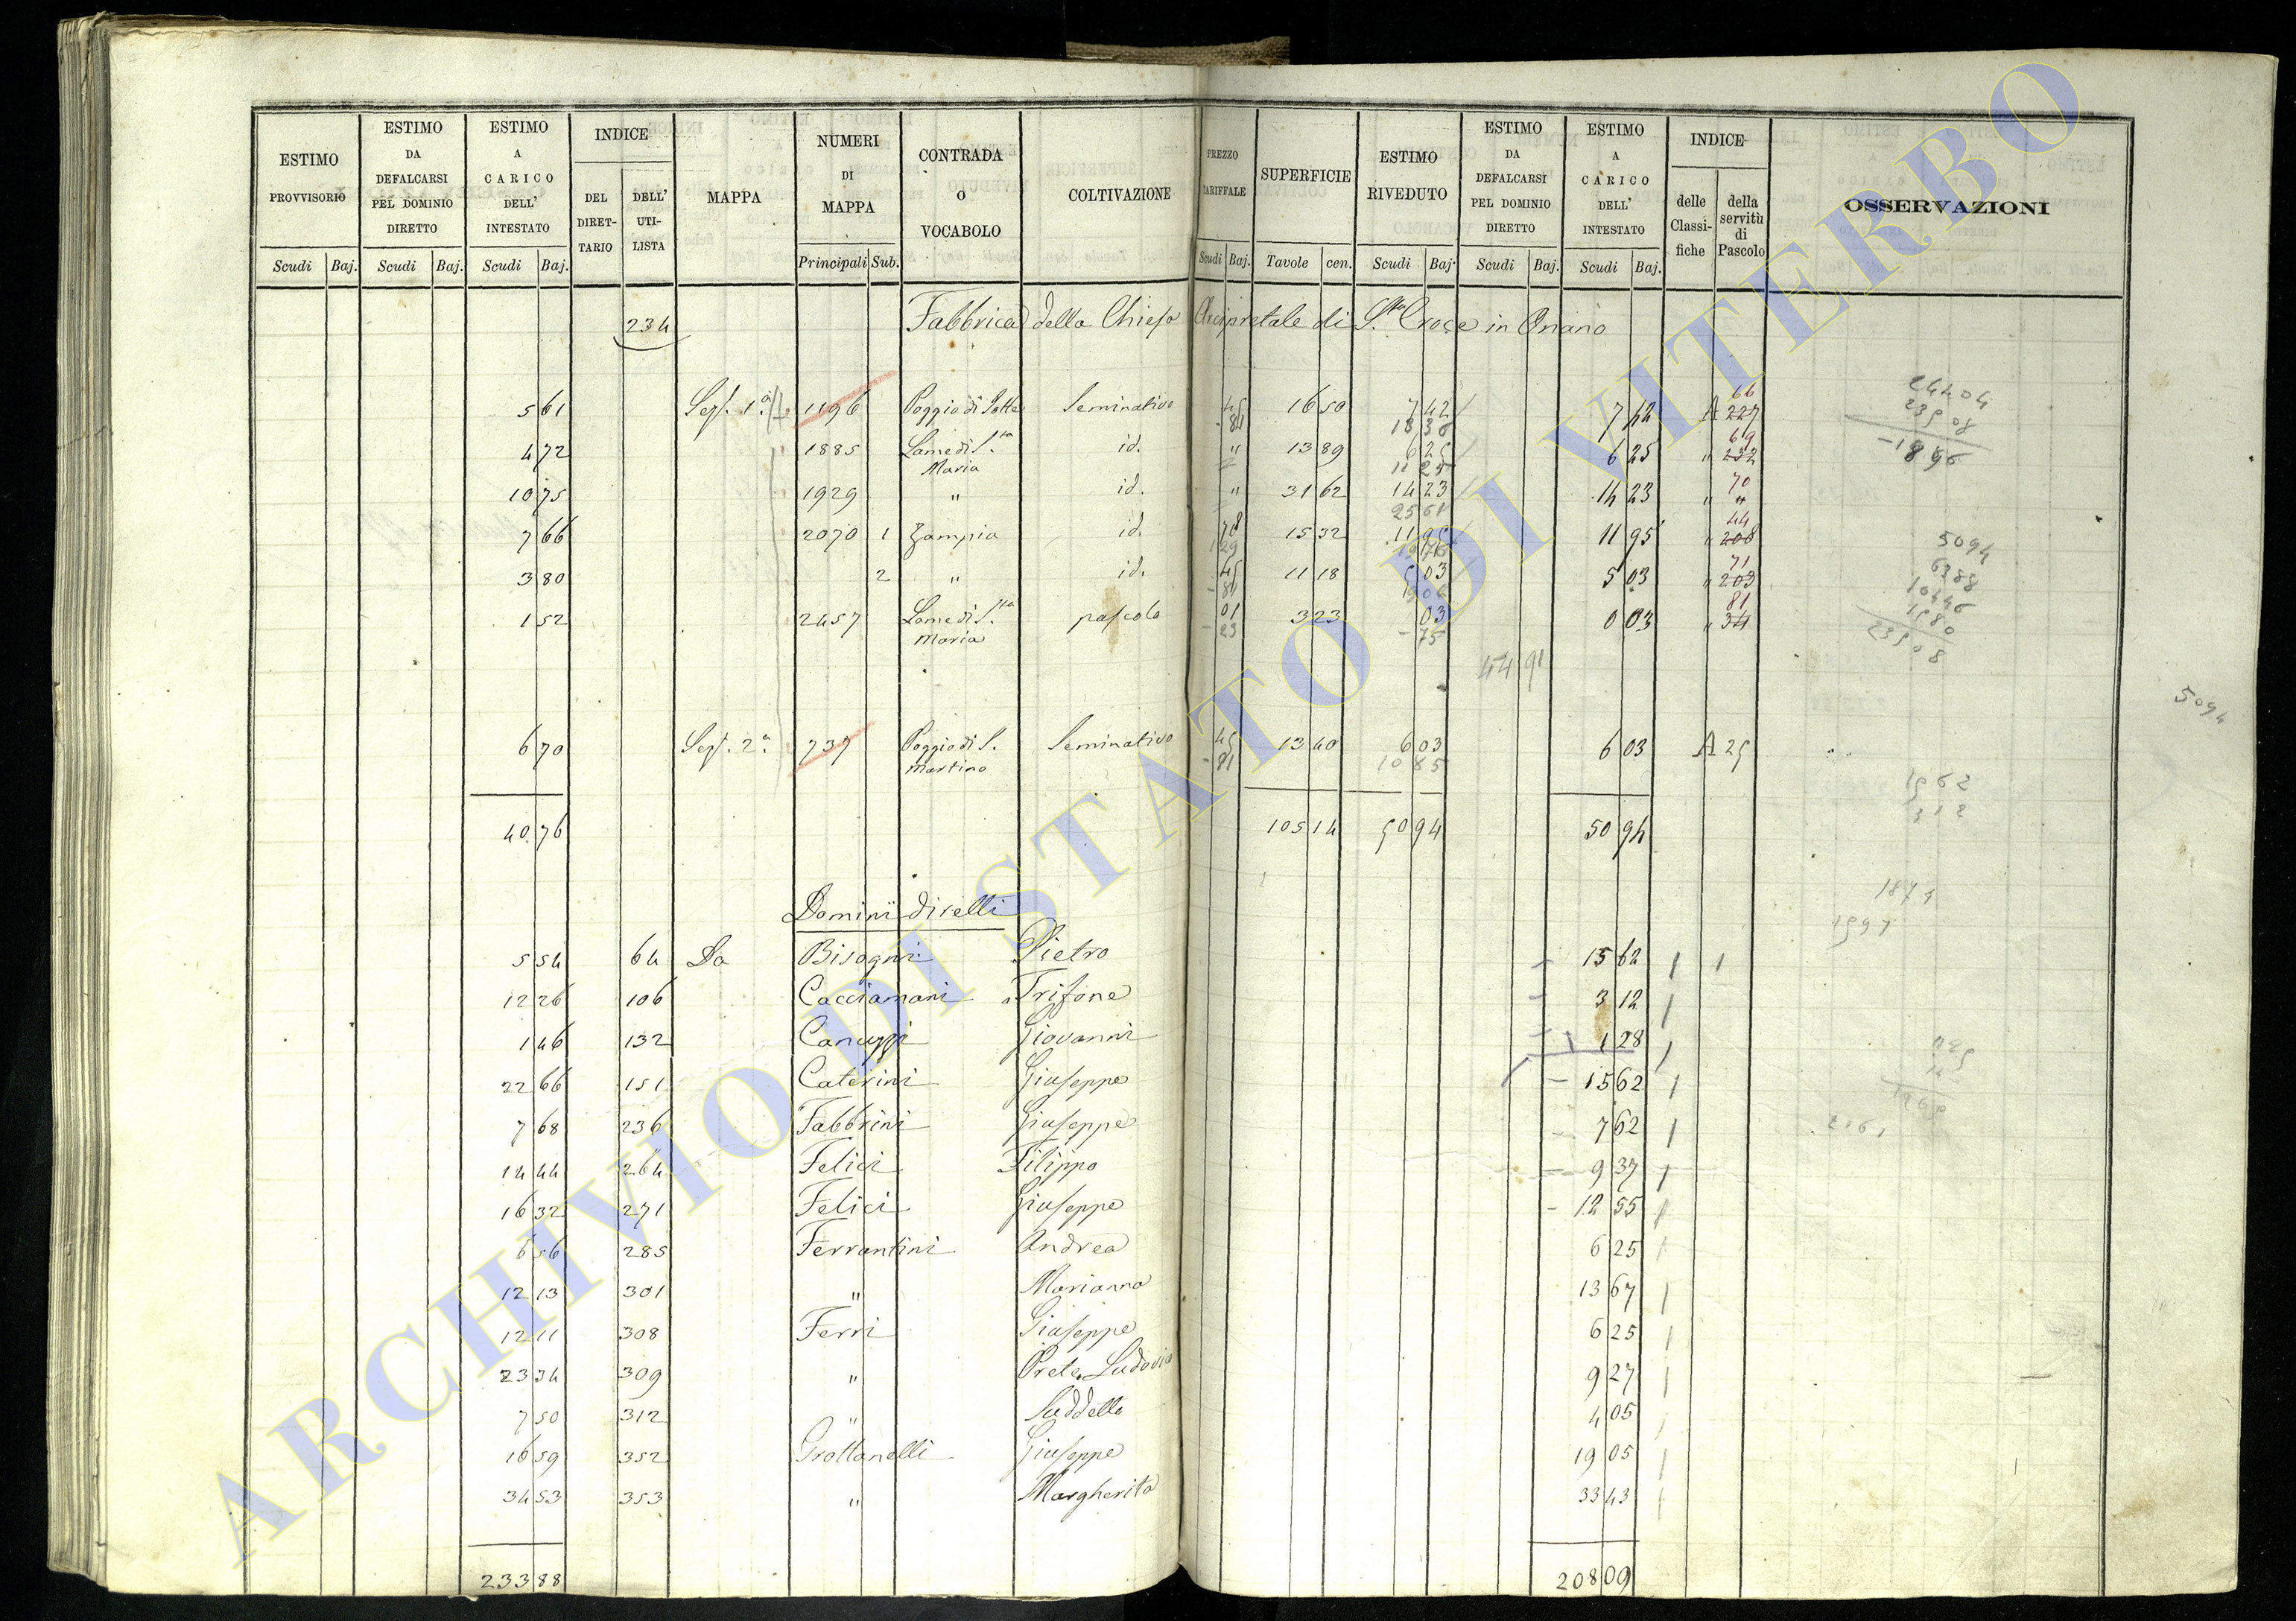 ESTIMO PROVVISORIO | ESTIMO DA DEFALCARSI PEL DOMINIO DIRETTO | ESTIMO A CARICO DELL' INTESTATO | INDICE DEL DIRET-TARIO | DELL' UTI-LISTA | MAPPA | NUMERI DI MAPPA | CONTRADA O VOCABOLO | COLTIVAZIONE | PREZZO TARIFFALE | SUPERFICIE | ESTIMO RIVEDUTO | ESTIMO DA DEFALCARSI PEL DOMINIO DIRETTO | ESTIMO A CARICO DELL' INTESTATO | INDICE delle Classi-fiche | della servitù di Pascolo | OSSERVAZIONI
Scudi Baj. | Scudi Baj. | Scudi Baj. | Principali Sub. | Scudi Baj. | Tavole cen. | Scudi Baj. | Scudi Baj. | Scudi Baj.
234 Fabbrica della Chiesa Arcipretale di S.ta Croce in Onano
5 61 Sez. 1a 1196 Poggio di Sotto Seminativo 45 16 50 7 42 7 42 A 227 66
4 72 1885 Lame di S.ta Maria id. " 13 89 6 25 6 25 " 232 69
10 75 1929 " id. " 31 62 14 23 14 23 " " 70
7 66 2070 1 Zampia id. 78 15 32 11 95 11 95 " 208 44
3 80 2 " id. 45 11 18 5 03 5 03 " 203 71
1 52 2457 Lame di S.ta Maria pascolo 01 3 23 03 0 03 " 34 81
44 91
6 70 Sez. 2a 737 Poggio di S. Martino Seminativo 45 13 40 6 03 6 03 A 25
40 76 105 14 50 94 50 94
Dominii diretti
5 54 64 Da Bisogni Pietro 15 62
12 26 106 Cacciamani Trifone 3 12
1 46 132 Canuzzi Giovanni 1 28
22 66 151 Caterini Giuseppe 15 62
7 68 236 Fabbrini Giuseppe 7 62
14 44 264 Felici Filippo 9 37
16 32 271 Felici Giuseppe 12 55
6 56 285 Ferrantini Andrea 6 25
12 13 301 " Marianna 13 67
12 11 308 Ferri Giuseppe 6 25
23 34 309 " Prete Ludovico 9 27
7 50 312 " Suddetto 4 05
16 59 352 Grottanelli Giuseppe 19 05
34 53 353 " Margherita 33 43
233 88 208 09
24404
23508
896
5094
6388
10446
1580
23508
5094
1562
312
ARCHIVIO DI STATO DI VITERBO